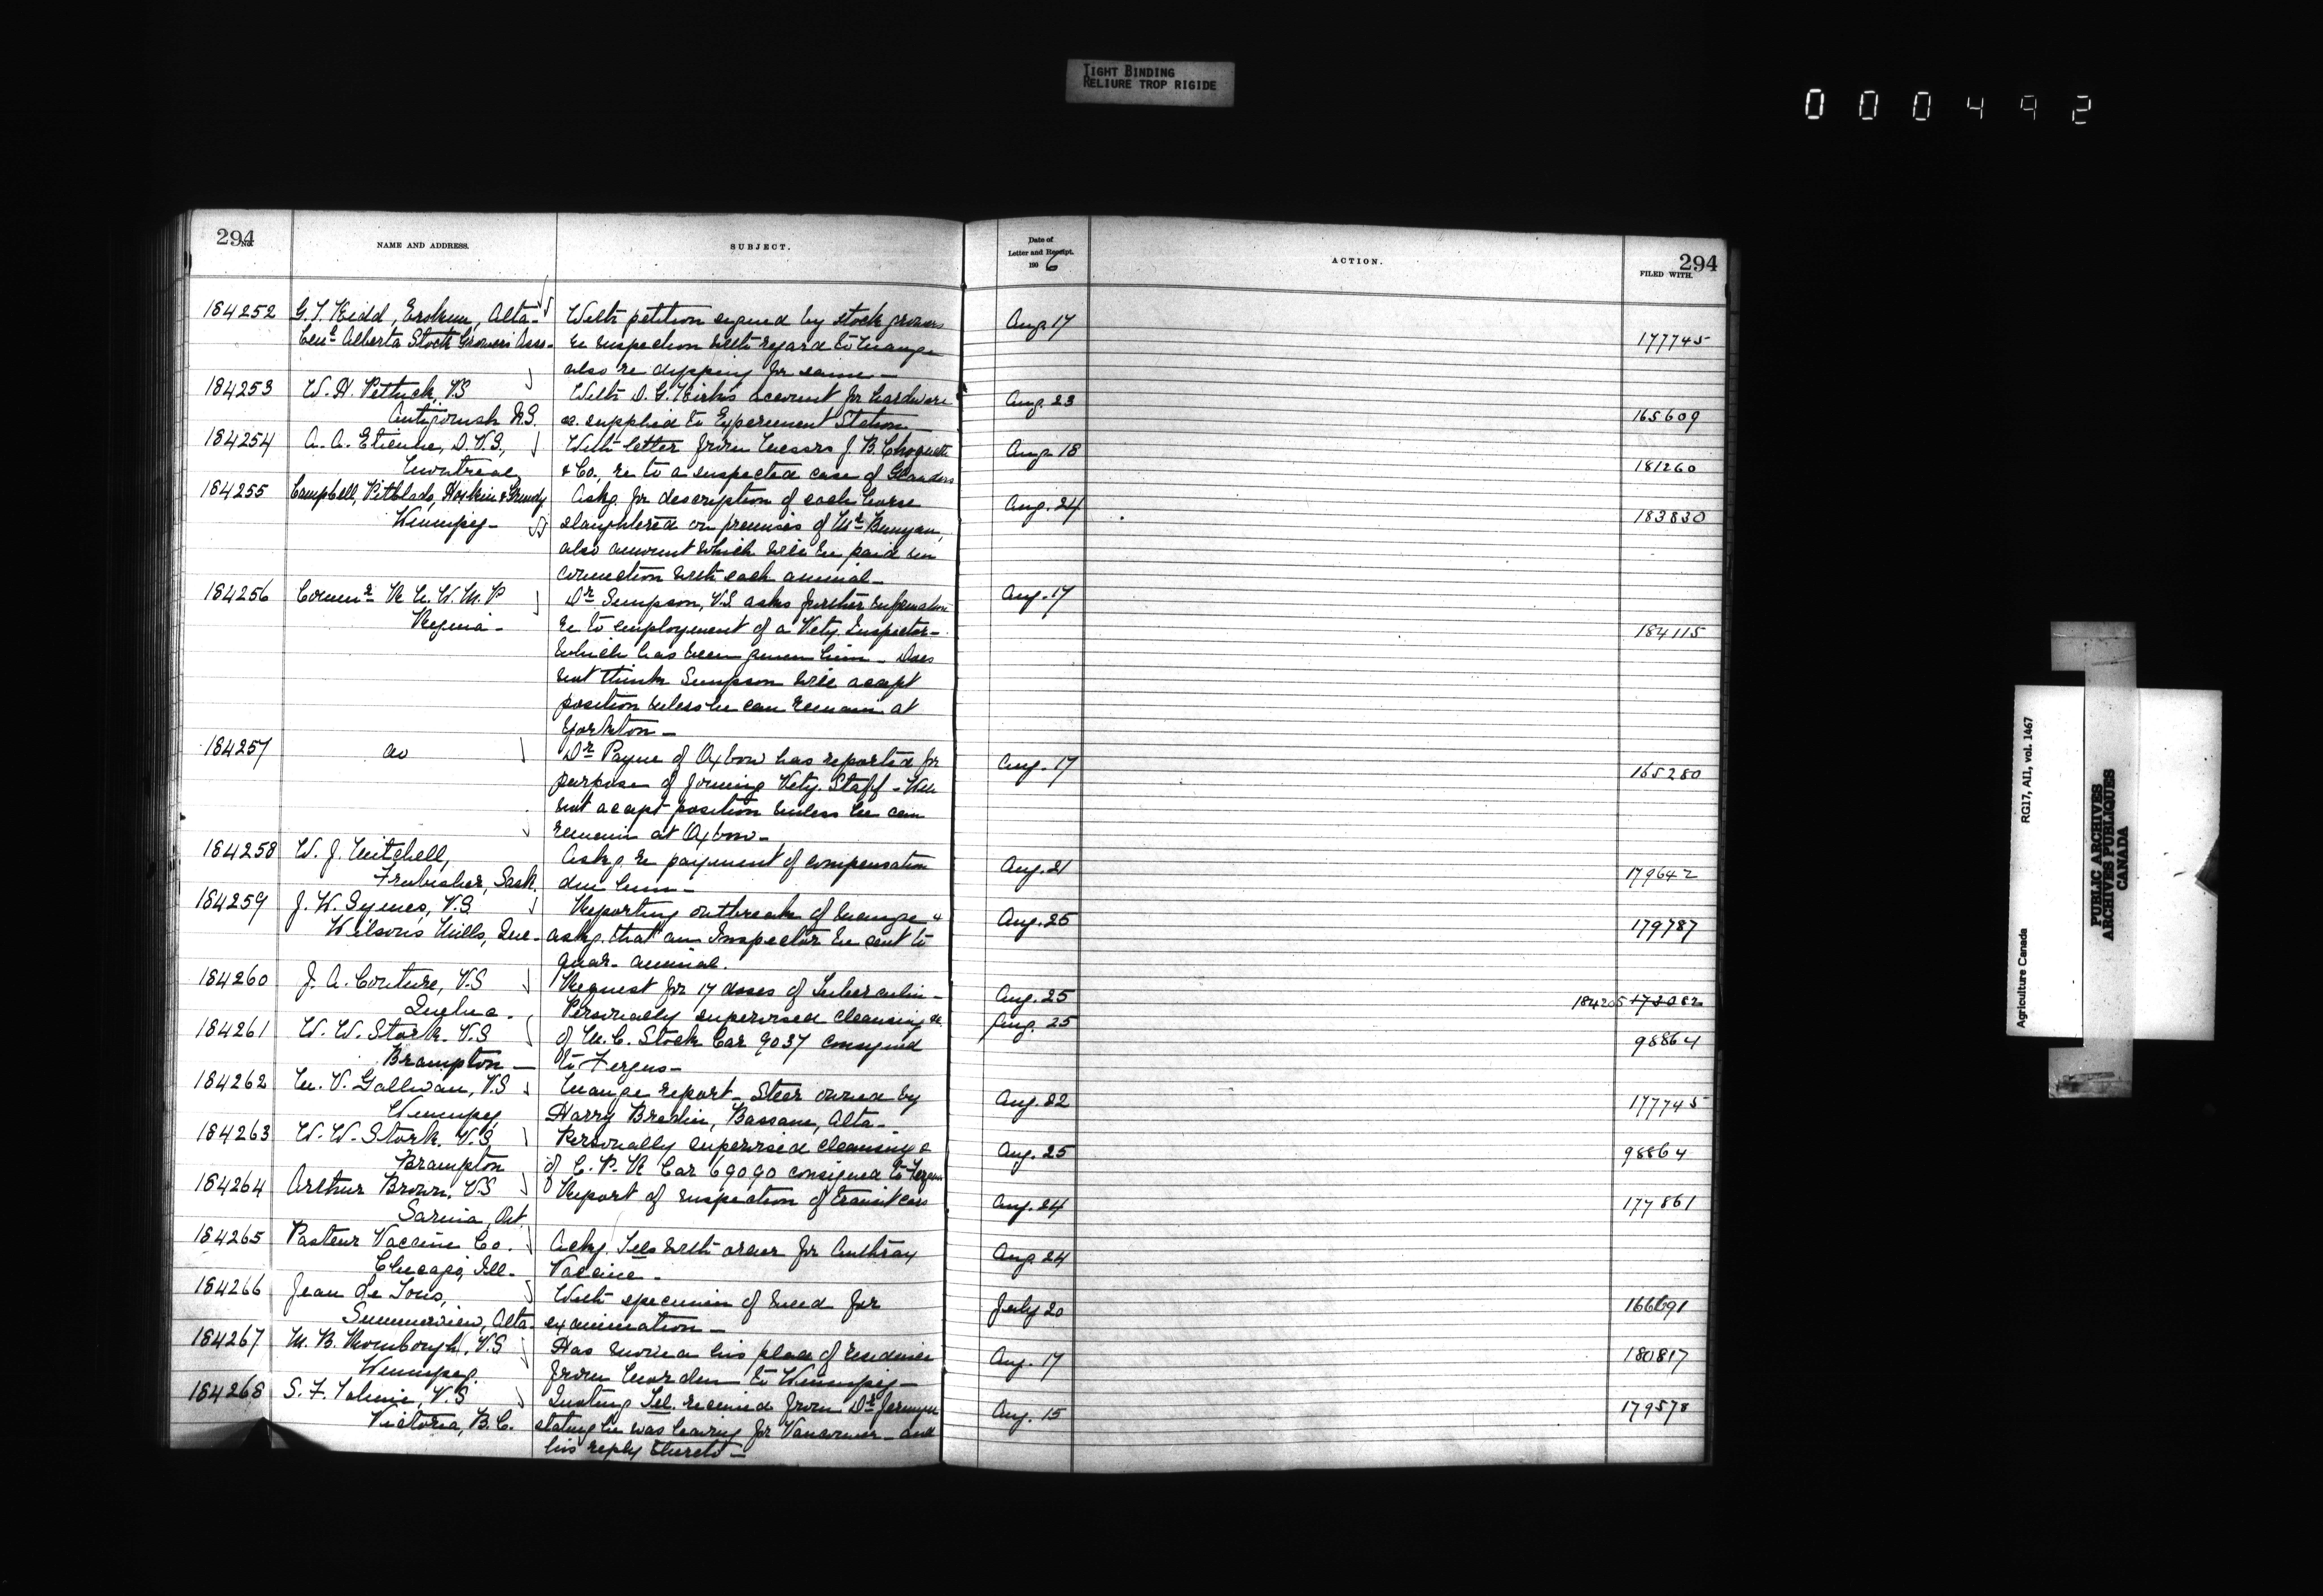 TIGHT BINDING
RELIURE TROP RIGIDE
000492
294
No.
NAME AND ADDRESS.
SUBJECT.
Date of
Letter and Receipt.
1906
ACTION.
294
FILED WITH.
184252 G. T. Kidd, Erskine, Alta. With petition signed by stock growers Aug 17
Cenl Alberta Stock Growers Assn. re inspection with regard to Mange 177745
also re dipping for same
184253 W. H. Pethick, VS With D. G. Kirk's account for hardware Aug. 23
Antigonish N.S. &c. supplied to Experiment Station 165609
184254 A. A. Etienne, D.V.S., With letter from Messrs J. B. Choquette Aug 18
Montreal & Co., re to a suspected case of Glanders 181260
184255 Campbell, Pitblado, Hoskin & Grundy Askg. for description of each horse Aug. 24
Winnipeg - slaughtered on premises of Mr Bunyan, 183830
also amount which will be paid in
connection with each animal -
184256 Commr R. N. W. M. P Dr Simpson, V.S asks further information Aug. 17
Regina - re to employment of a Vety. Inspector - 184115
which has been given him - Does
not think Simpson will accept
position unless he can remain at
Yorkton -
184257 do Dr Payne of Oxbow has reported for Aug. 17
purpose of joining Vety. Staff - Will 165280
not accept position unless he can
remain at Oxbow -
184258 W. J. Mitchell, Askg. re payment of compensation Aug. 21
Frobisher, Sask. due him - 179642
184259 J. W. Symes, V.S Reporting outbreak of Mange & Aug. 25
Wilson's Mills, Que. askg. that an Inspector be sent to 179787
quar. animal.
184260 J. A. Couture, V.S Request for 17 doses of Tuberculin - Aug. 25
Quebec. 184205 173082
184261 W. W. Stork. V.S Personally supervised cleansing &c. Aug. 25
Brampton - of M. C. Stock Car 9037 consigned 98864
to Fergus -
184262 M. V. Gallivan, V.S Mange report - Steer owned by Aug. 22
Winnipeg Harry Bredin, Bassano, Alta - 177745
184263 W. W. Stork. V.S, Personally supervised cleansing & Aug. 25
Brampton of C. P. R Car 69090 consigned to Fergus 98864
184264 Arthur Brown, V.S Report of inspection of transit cars Aug. 24
Sarnia, Ont. 177861
184265 Pasteur Vaccine Co. Ackg. Tels with order for Anthrax Aug 24
Chicago, Ill. Vaccine -
184266 Jean de Tons, With specimen of weed for July 20
Summerview, Alta. examination - 166691
184267 M. B. Rombough, V.S Has moved his place of residence Aug. 17
Winnipeg. from Morden to Winnipeg - 180817
184268 S. F. Tolmie, V.S Quoting Tel. received from Dr Jermyn Aug. 15
Victoria, B.C. stating he was leaving for Vancouver - and 179578
his reply thereto -
Agriculture Canada
RG17, AII, vol. 1467
PUBLIC ARCHIVES
ARCHIVES PUBLIQUES
CANADA